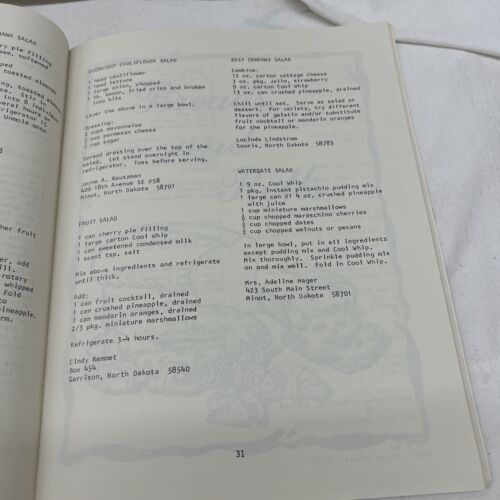 ANA SALAD
ry pie filling
am, softened
toasted almonds
OVERNIGHT CAULIFLOWER SALAD
1 head cauliflower
1 head lettuce
1 large onion, chopped
1 lb. bacon, fried crisp and broken
into bits
Layer the above in a large bowl.
Dressing:
2 cups mayonnaise
cup parmesan cheese
cup sugar
Spread dressing over the top of the
salad. Let stand overnight in
refrigerator. Toss before serving.
Jayne A. Kautzman
400 10th Avenue SE #58
Minot, North Dakota 58701
FRUIT SALAD
1 can cherry pie filling
1 large carton Cool Whip
1 can sweetened condensed milk
1 scant tsp. salt
Mix above ingredients and refrigerate
until thick.
Add:
1 can fruit cocktail, drained
1 can crushed pineapple, drained
1 can mandarin oranges, drained
2/3 pkg. miniature marshmallows
Refrigerate 3-4 hours.
Cindy Kemmet
Box 454
Garrison, North Dakota 58540
EASY COMPANY SALAD
Combine:
12 oz. carton cottage cheese
3 oz. pkg. Jello, strawberry
9 oz. carton Cool Whip
13 oz. can crushed pineapple, drained
Chill until set. Serve as salad or
dessert. For variety, try different
flavors of gelatin and/or substitute
fruit cocktail or mandarin oranges
for the pineapple.
Lucinda Lindstrom
Souris, North Dakota 58783
WATERGATE SALAD
1 9 oz. Cool Whip
1 pkg. instant pistachio pudding mix
1 large can #1 4 oz. crushed pineapple
with juice
1 cup miniature marshmallows
½ cup chopped maraschino cherries
½ cup chopped dates
½ cup chopped walnuts or pecans
In large bowl, put in all ingredients
except pudding mix and Cool Whip.
Mix thoroughly. Sprinkle pudding mix
on and mix well. Fold in Cool Whip.
Mrs. Adeline Hager
423 South Main Street
Minot, North Dakota 58701
31